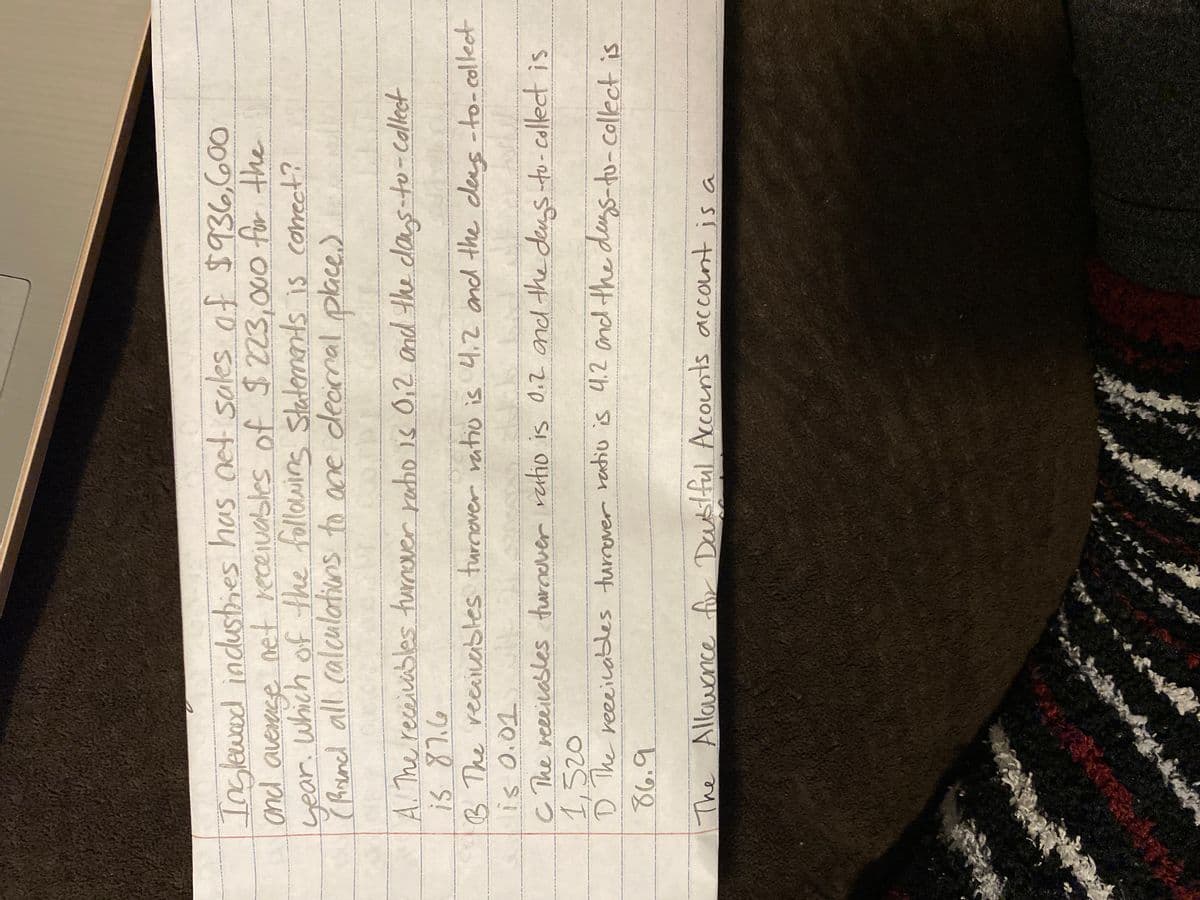 Inglewood industries has net sales of $936,600
and average net receivables of $223,000 for the
year. Which of the following statements is correct?
(Round all calculations to one decimal place.)
A. The receivables turnover ratio is 0.2 and the days-to-collect
is 87.6
B The receivables turnover ratio is 4.2 and the days-to-collect
is 0.01
C The receivables turnover ratio is 0.2 and the days-to-collect is
1,520
D The receivables turnover ratio is 4.2 and the days-to-collect is
86.9
The Allowance for Doubtful Accounts account is a